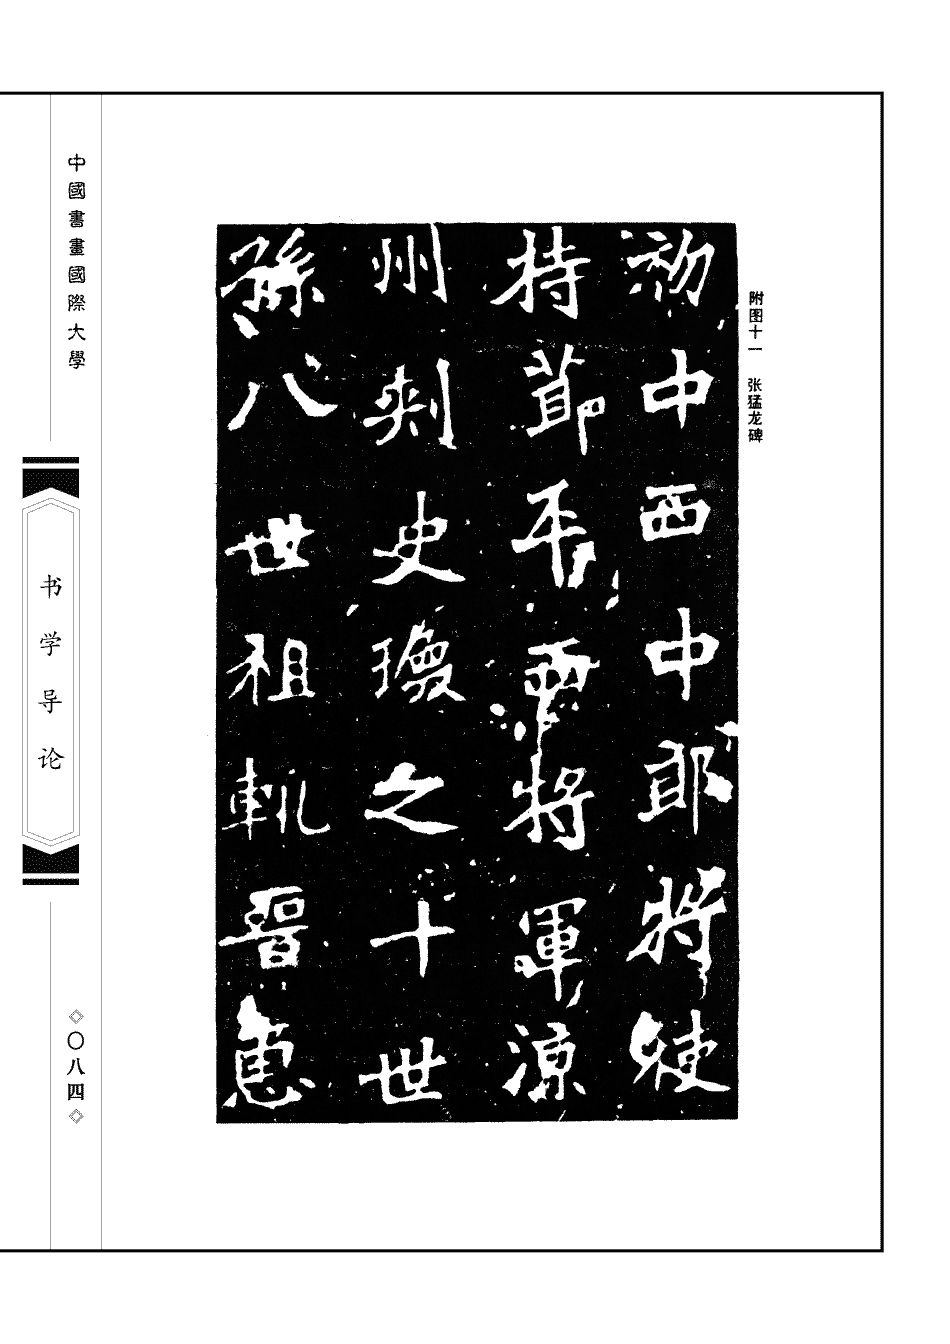 附图十一 张猛龙碑
初中西中郎將使
持節平西將軍涼
州刺史瓊之十世
孫八世祖軌晉惠
中國書畫國際大學
书学导论
◇〇八四◇